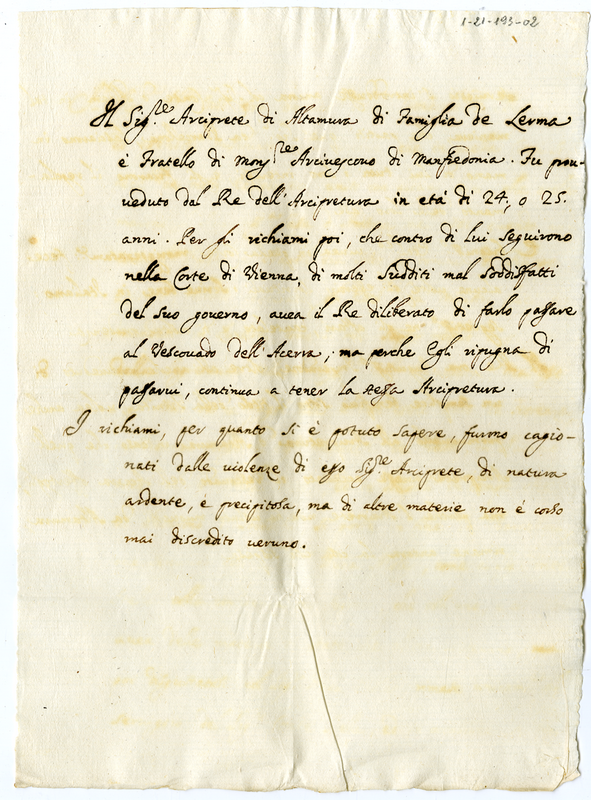 1-21-193-02
Il Sig.re Arciprete di Altamura di Famiglia de Lerma
è Fratello di Mons.re Arcivescovo di Manfredonia. Fu prou-
ueduto dal Re dell'Arcipretura in età di 24, o 25.
anni. Per gli richiami poi, che contro di Lui seguirono
nella Corte di Vienna, di molti sudditi mal soddisfatti
del suo governo, avea il Re diliberato di farlo passare
al Vescouado dell'Acerra; ma perche Egli ripugna di
passarui, continua a tener la stessa Arcipretura.
I richiami, per quanto si è potuto sapere, furno cagio-
nati dalle violenze di esso Sig.re Arciprete, di natura
ardente, e precipitosa, ma di altre materie non è corso
mai discredito ueruno.